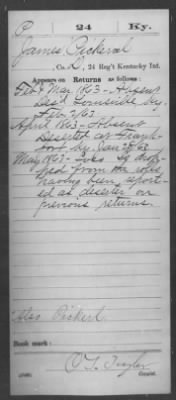 P 24 Ky.
James Pickeral
Co. , 24 Reg't Kentucky Inf.
Appears on Returns as follows:
Feb & Mar 1863 - Absent
Louisville Ky.
Feb. 2/63
April 1863 - Absent
Deserted at Frank-
fort Ky. Jan 28/63
May 1863 - drop-
ped from the rolls
having been report-
ed as deserter on
previous returns.
Also Pickerl
Book mark:
Copyist.